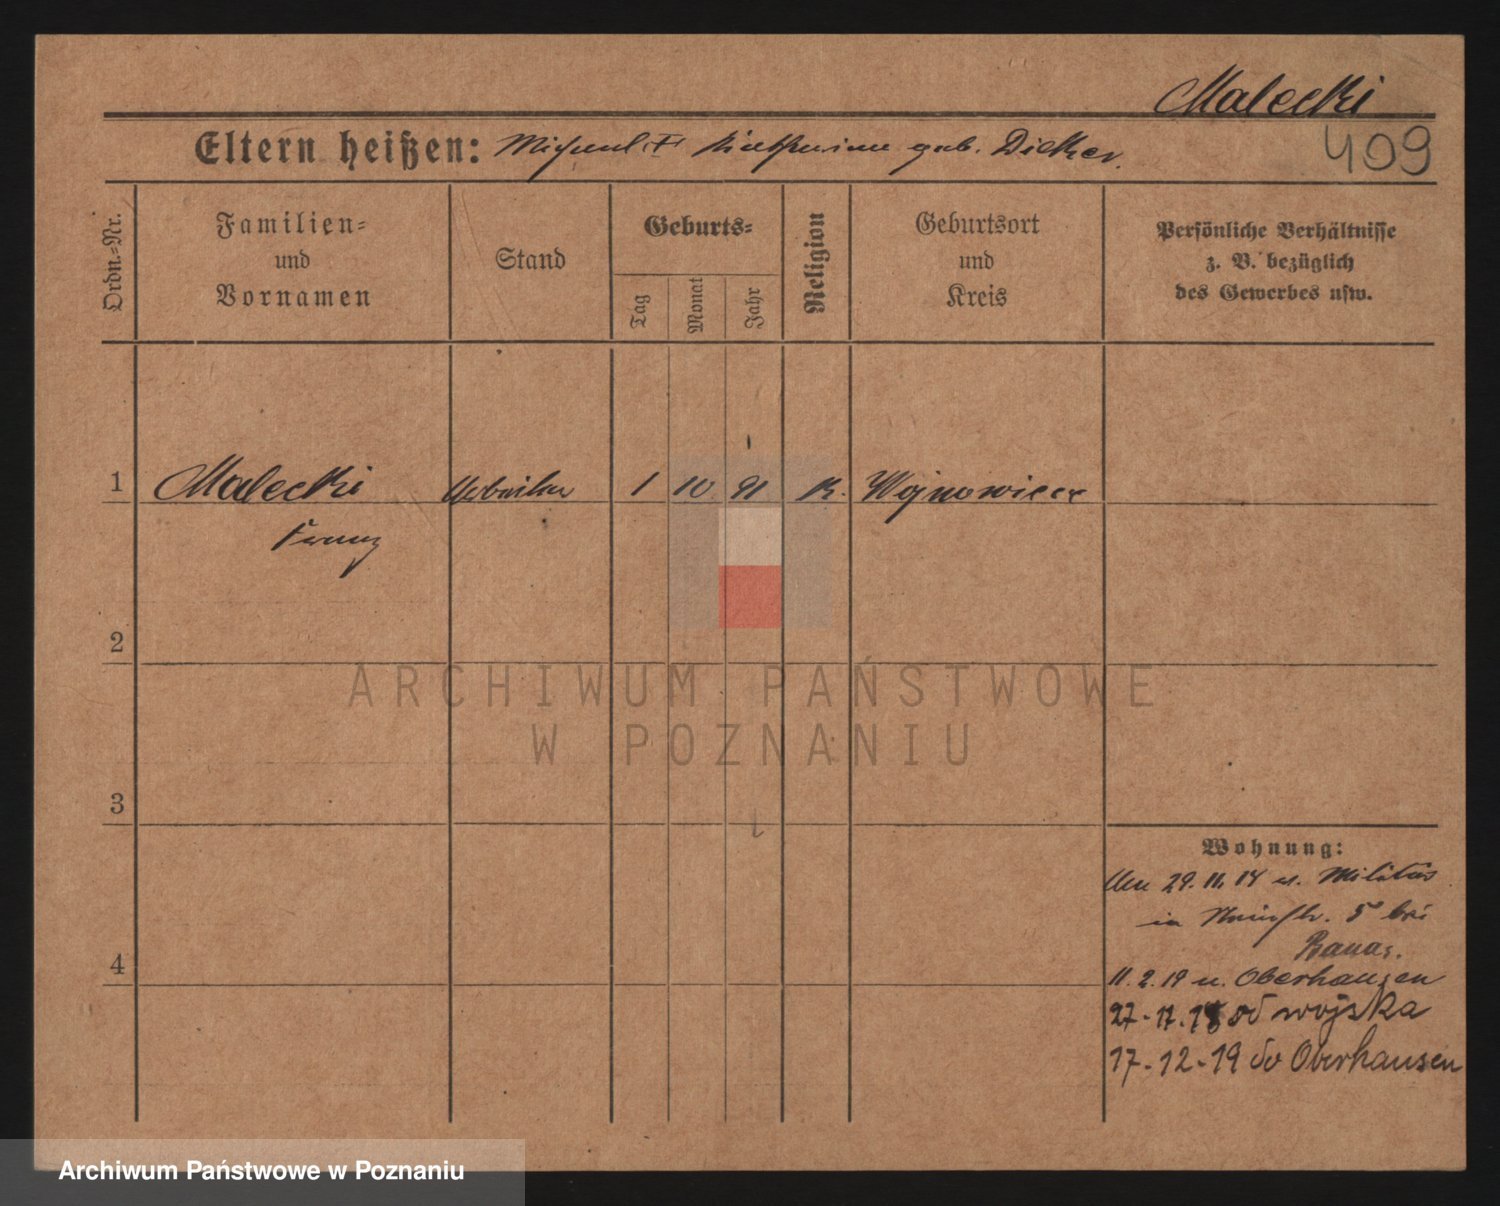 Malecki
409
Eltern heißen: Michael u. Katharina geb. Dieker.
Ordn.-Nr.
Familien-
und
Vornamen
Stand
Geburts-
Tag
Monat
Jahr
Religion
Geburtsort
und
Kreis
Persönliche Verhältnisse
z. B. bezüglich
des Gewerbes usw.
1 Malecki Arbeiter 1 10 91 K. Wojnowice
Franz
2
ARCHIWUM PAŃSTWOWE
W POZNANIU
3
Wohnung:
29. 11. 18 v. Militär
in 5 bei
4
11. 2. 19 n. Oberhausen
27-11.18 od wojska
17-12-19 do Oberhausen
Archiwum Państwowe w Poznaniu